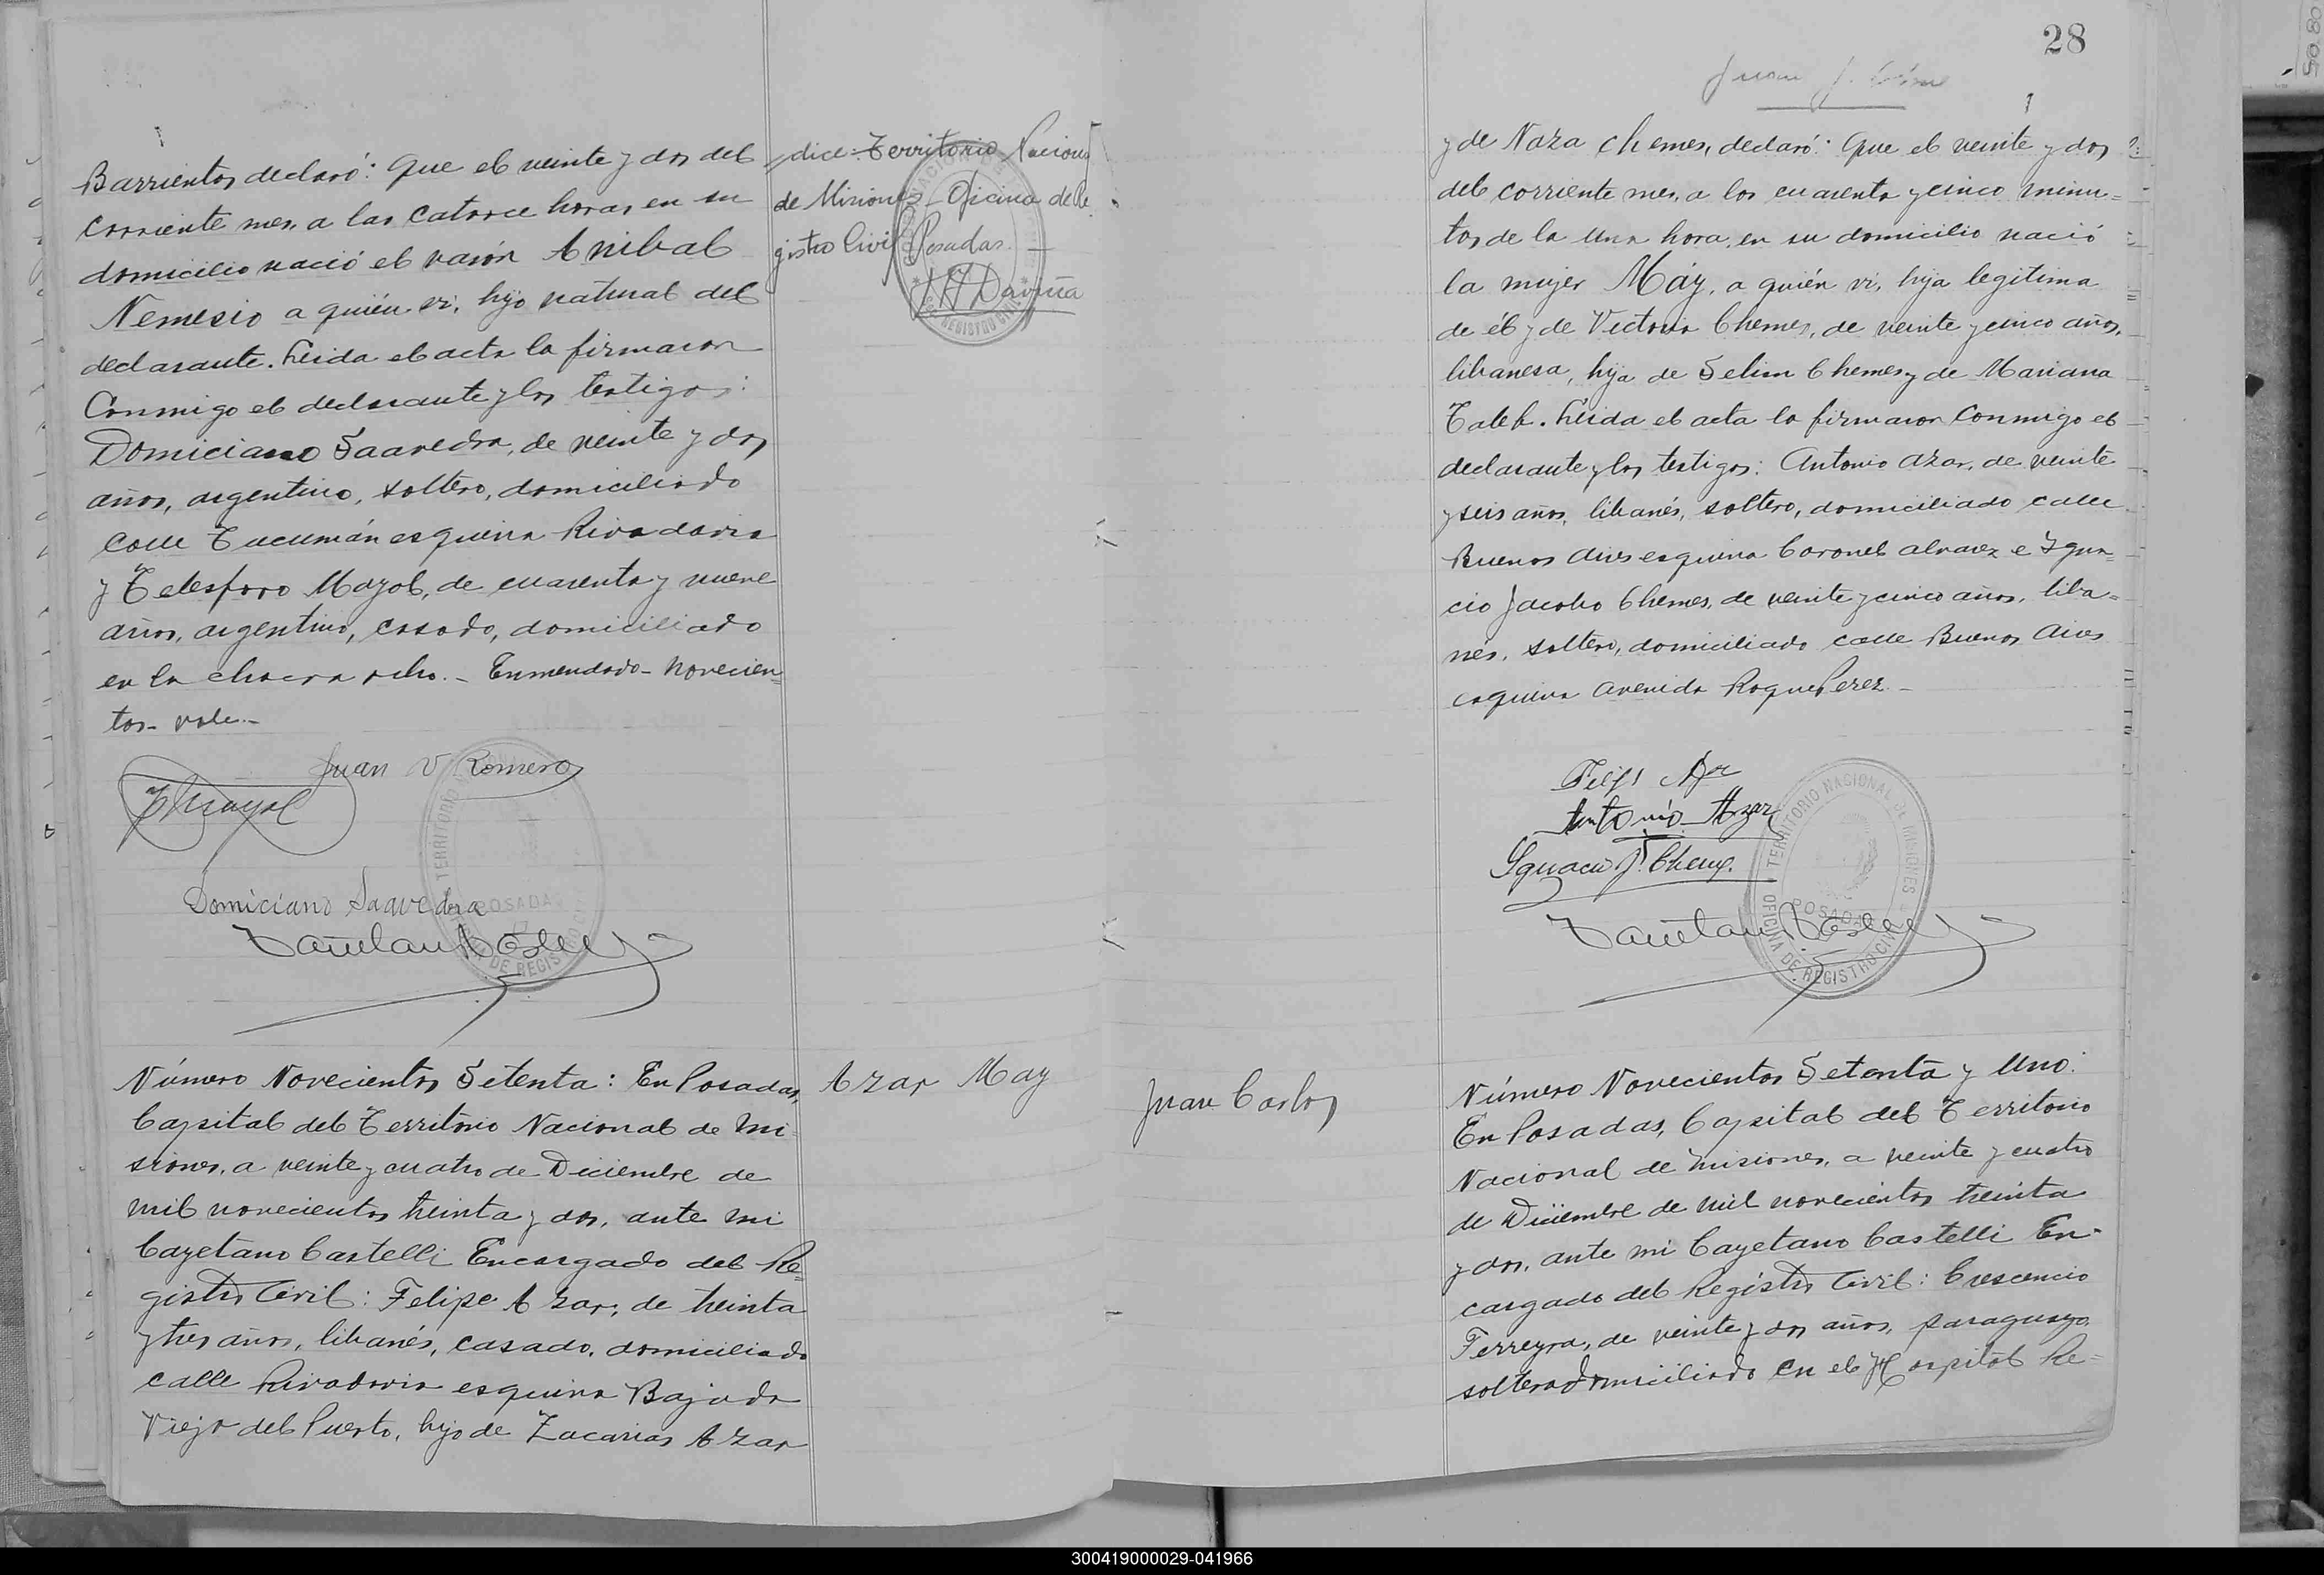 Barrientos declaró: Que el veinte y dos del
corriente mes, a las catorce horas en su
domicilio nació el varón Anibal
Nemesio a quién vi, hijo natural del
declarante. Leida el acta la firmaron
Conmigo el declarante y los testigos:
Domiciano Saavedra, de veinte y dos
años, argentino, soltero, domiciliado
calle Tucumán esquina Rivadavia
y Telesforo Mayol, de cuarenta y nueve
años, argentino, casado, domiciliado
en la chacra ocho. - Enmendado - Novecien=
tos - vale. -
Juan V Romero
T Mayol
Domiciano Saavedra
TERRITORIO
POSADAS
DE REGISTRO
dice: Territorio Nacional
de Misiones - Oficina de Re
gistro Civil Posadas. -
REGISTRO CIVIL
Número Novecientos Setenta: En Posadas,
Capital del Territorio Nacional de Mi
siones, a veinte y cuatro de Diciembre de
mil novecientos treinta y dos, ante mi
Cayetano Castelli Encargado del Re=
gistro Civil: Felipe Azar, de treinta
y tres años, libanés, casado, domiciliado
calle Rivadavia esquina Bajada
Vieja del Puerto, hijo de Zacarias Azar
Azar May
28
Juan J.
y de Naza Chemes, declaró: Que el veinte y dos
del corriente mes, a los cuarenta y cinco minu=
tos de la una hora, en su domicilio nació
la mujer Máy, a quién vi, hija legitima
de él y de Victoria Chemes, de veinte y cinco años,
libanesa, hija de Selim Chemes y de Mariana
Taleb. Leida el acta la firmaron Conmigo el
declarante y los testigos: Antonio Azar, de veinte
y seis años, libanés, soltero, domiciliado calle
Buenos Aires esquina Coronel Alvarez e Igna=
cio Jacobo Chemes, de veinte y cinco años, liba=
nés, soltero, domiciliado calle Buenos Aires
esquina Avenida Roque Perez -
Antonio Azar
Ignacio J. Chemes.
TERRITORIO NACIONAL DE MISIONES
POSADAS
OFICINA DE REGISTRO CIVIL
Juan Carlos
Número Novecientos Setenta y Uno:
En Posadas, Capital del Territorio
Nacional de Misiones, a veinte y cuatro
de Diciembre de mil novecientos treinta
y dos, ante mi Cayetano Castelli En-
cargado del Registro Civil: Crescencio
Ferreyra, de veinte y dos años, paraguayo,
soltero domiciliado en el Hospital Re=
300419000029-041966